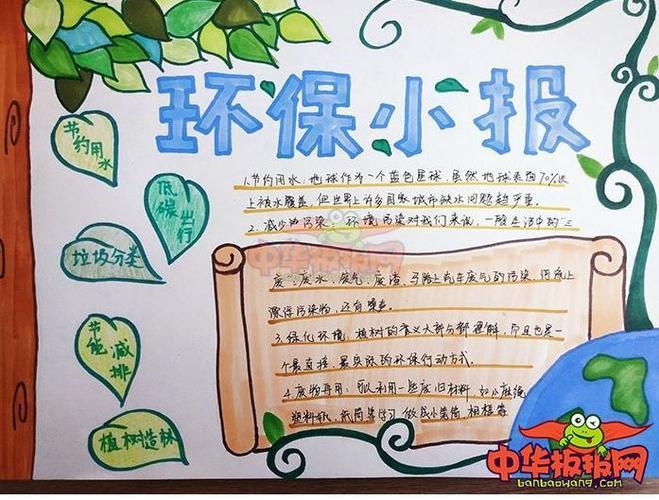 环保小报
节约用水
低碳出行
垃圾分类
节能减排
植树造林
1.节约用水:地球作为一个蓝色星球,虽然地球表面70%以
上被水覆盖,但世界上许多国家城市缺水问题趋严重。
2.减少油污染:环境污染对我们来说,一般生活中的"三
废":废水、废气、废渣,马路上汽车废气的污染,河流上
漂浮污染物,还有噪音。
3.绿化环境,植树的意义大部分都理解,而且也是一
个最直接,最实际的环保行动方式.
4.废物再用:可以利用一些废旧材料,如
塑料瓶,纸筒等学习做成小装饰相框等
中华板报网
中华板报网
banbaowang.com